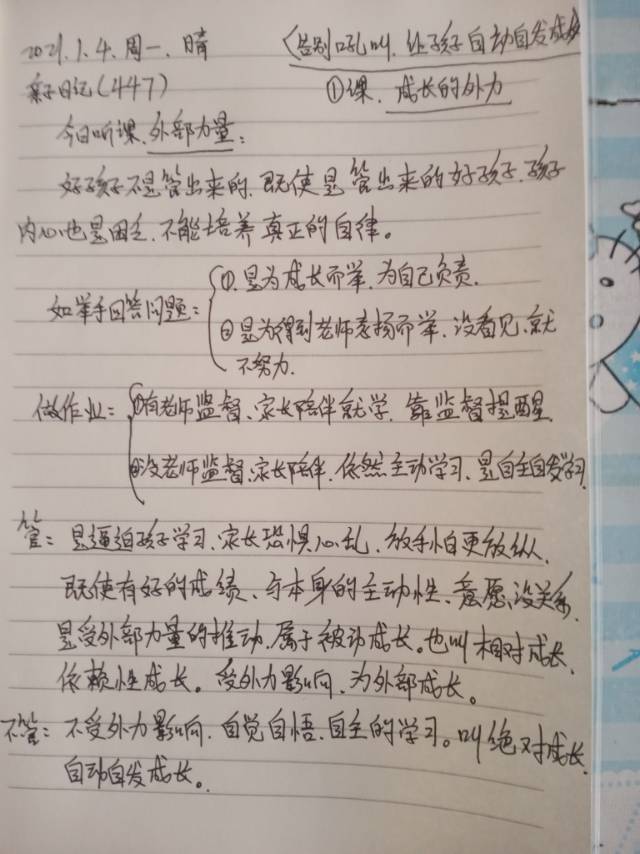 2021.1.4.周一.晴
《告别吼叫.让孩子自动自发成长》
亲子日记(447)
①课.成长的外力
今日听课.外部力量:
好孩子不是管出来的.既使是管出来的好孩子.孩子
内心也是困乏.不能培养真正的自律。
如举手回答问题:
①.是为成长而举.为自己负责.
②是为得到老师表扬而举.没看见.就
不努力.
做作业:
①有老师监督、家长陪伴就学.靠监督提醒.
②没老师监督、家长陪伴.依然主动学习.是自主自发学习.
管:是逼迫孩子学习.家长恐惧心乱.放手怕更放纵.
既使有好的成绩、与本身的主动性、意愿、没关系.
是受外部力量的推动.属于被动成长。也叫相对成长.
依赖性成长。受外力影响.为外部成长。
不管:不受外力影响.自觉自悟.自主的学习。叫绝对成长.
自动自发成长。